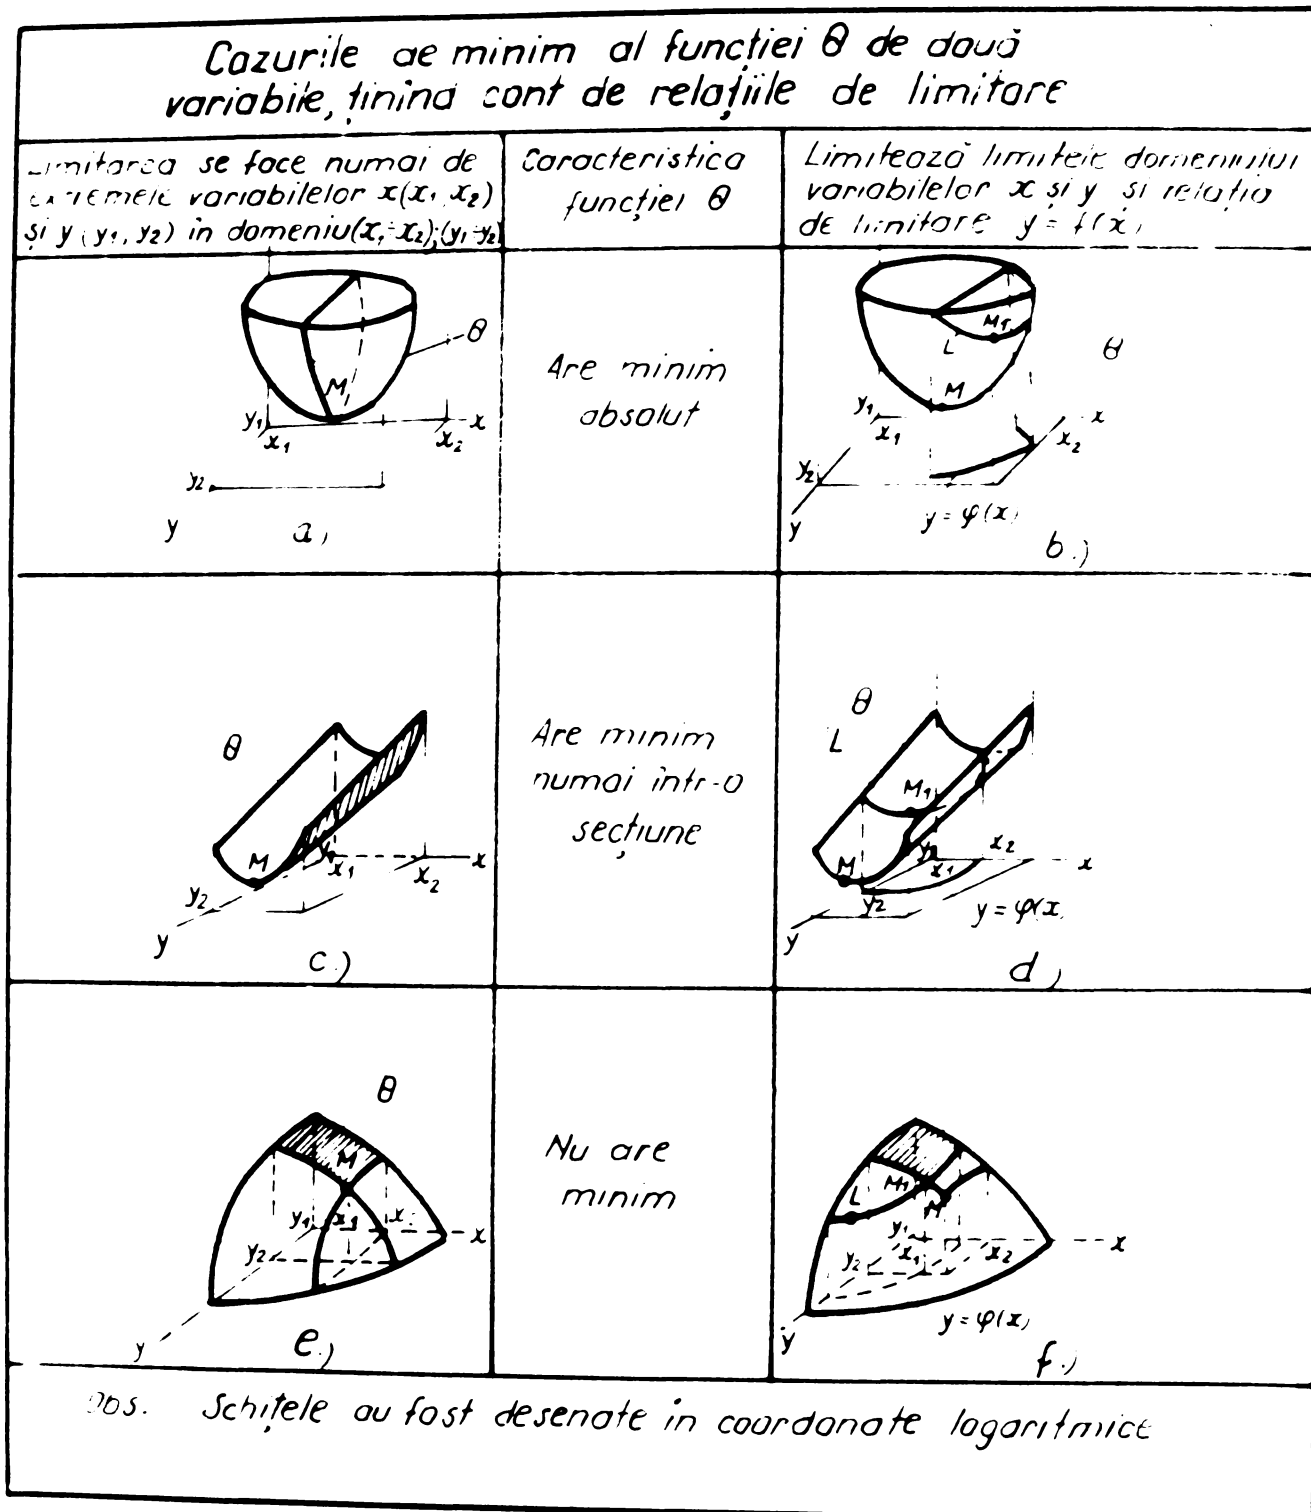 Cazurile de minim al funcției θ de două
variabile, ținînd cont de relațiile de limitare
Limitarea se face numai de
extremele variabilelor x(x₁, x₂)
și y (y₁, y₂) in domeniu(x₁÷x₂);(y₁÷y₂)
Caracteristica
funcției θ
Limitează limitele domeniului
variabilelor x și y și relația
de limitare y = f(x)
θ
M
y₁
x₁
x₂
x
y₂
y
a)
Are minim
absolut
M₁
L
θ
M
y₁
x₁
x
x₂
y₂
y
y = φ(x)
b.)
θ
M
y₁
x₁
x
x₂
y₂
y
c.)
Are minim
numai într-o
secțiune
θ
L
M₁
x₂
y₁
M
x₁
x
y₂
y = φ(x)
y
d)
θ
M
y₁
x₁
x
y₂
y
e.)
Nu are
minim
M₁
L
M
y₁
x
x₁
x₂
y₂
y = φ(x)
y
f.)
Obs. Schițele au fost desenate in coordonate logaritmice